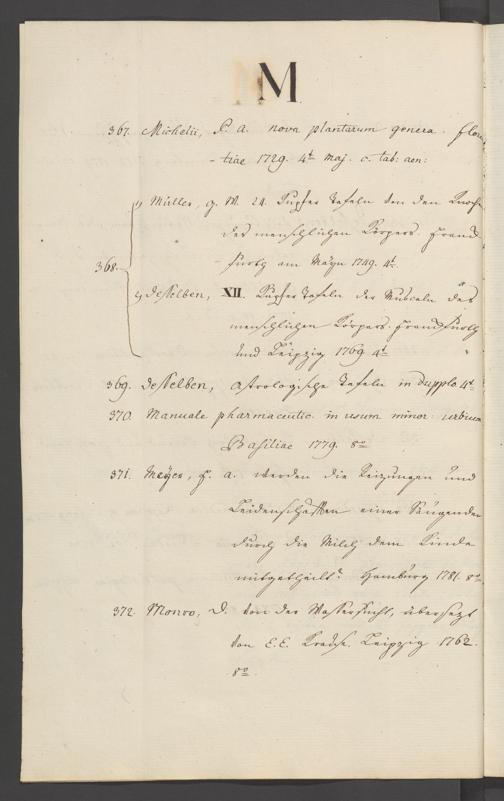 M
367. Michelii, P. A. nova plantarum genera. Floren
- tiae 1729. 4to maj. c. tab: aen:
368. 1) Müller, G. W. 24. Kupfer Tafeln von den Knochen
des menschlichen Körpers. Franck
- furth am Mayn 1749. 4to.
2) desselben, XII. Kupfer Tafeln der Musceln des
menschlichen Körpers. Franckfurth
und Leipzig 1769 4to
369. desselben, Tafeln in dupplo 4to
370. Manuale pharmaceutic. in usum minor. urbium
Basiliae 1779. 8vo
371. Meyer, F. A. werden die Reizungen und
Leidenschafften einer Säugenden
durch die Milch dem Kinde
mitgetheilt? Hamburg 1781. 8vo.
372. Monro, D. von der Wassersucht, übersezt
von E.E. Krause. Leipzig 1762.
8vo.